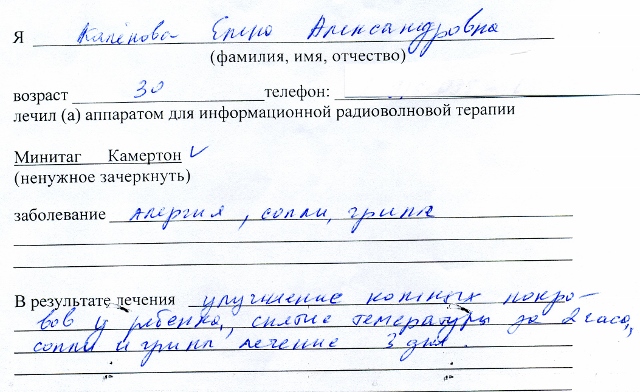 Я Каленова Елена Александровна
(фамилия, имя, отчество)
возраст 30 телефон:
лечил (а) аппаратом для информационной радиоволновой терапии
Минитаг Камертон ✓
(ненужное зачеркнуть)
заболевание алергия, сопли, грипп
В результате лечения улучшение кожных покро-
вов у ребенка, снятие температуры за 2 часа,
сопли и грипп лечение 3 дня.